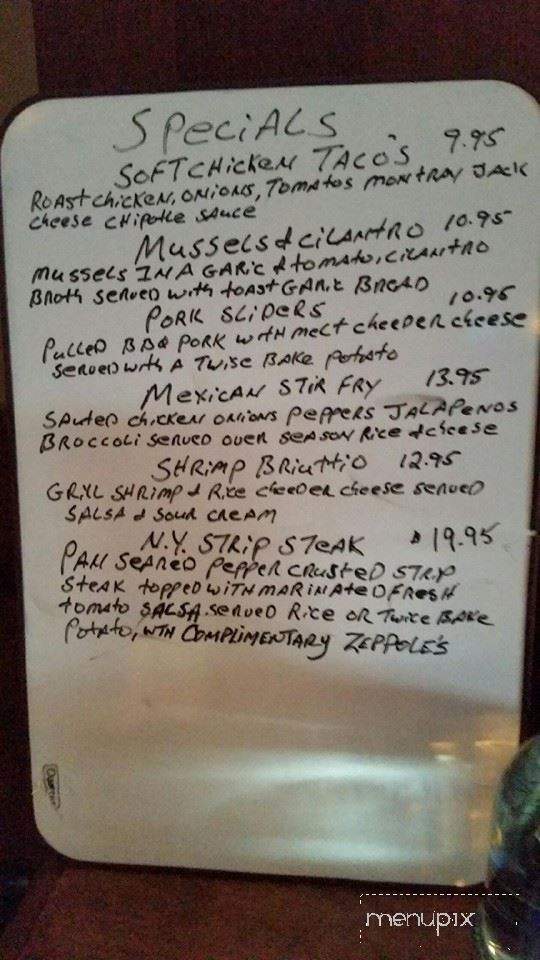 SPeciALS
SOFT CHicken TACO'S 9.95
ROAST chicken, ONIONS, TOMATOS MONTRAY JACK
cheese CHiPOTLE SAUCE
MUSSELS & CiLANTRO 10.95
mussels IN A GARIC & TOMATO, CILANTRO
BROTH SERVED WITH TOAST GARIC BREAD
PORK SLIDERS 10.95
PULLED BBQ PORK WITH MELT CHEEDER CHEESE
SERVED WITH A TWISE BAKE POTATO
MEXICAN STIR FRY 13.95
SAUTED CHICKEN ONIONS PEPPERS JALAPENOS
BROCCOLI SERVED OVER SEASON RICE & CHEESE
SHRIMP BRIUTTIO 12.95
GRILL SHRIMP & RICE CHEEDER CHEESE SERVED
SALSA & SOUR CREAM
N.Y. STRIP STEAK $19.95
PAN SEARED PEPPER CRUSTED STRIP
STEAK TOPPED WITH MARINATED FRESH
TOMATO SALSA. SERVED RICE OR TWICE BAKE
POTATO, WTH COMPLIMENTARY ZEPPOLE'S
menupix